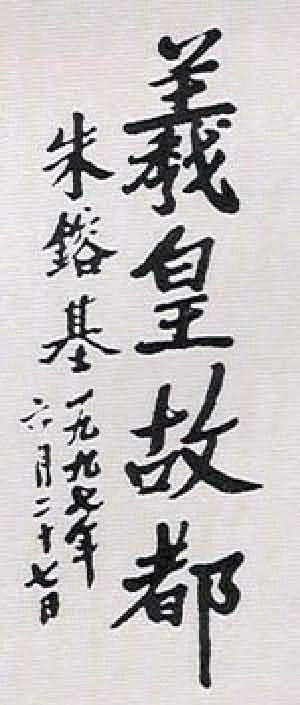 羲皇故都
朱鎔基
一九九七年
六月二十七日